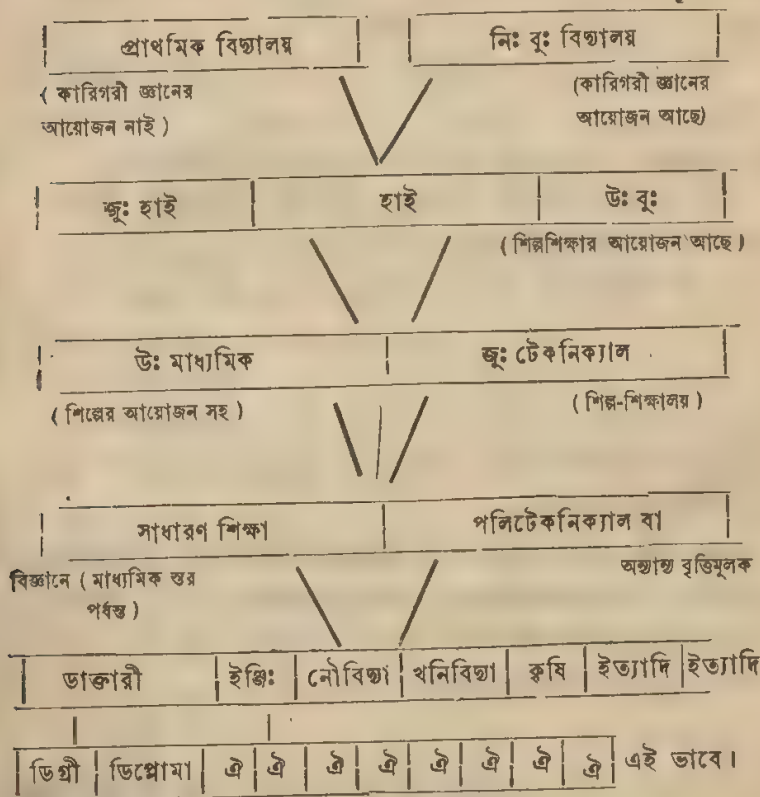 প্রাথমিক বিদ্যালয় নিঃ বুঃ বিদ্যালয়
( কারিগরী জ্ঞানের (কারিগরী জ্ঞানের
আয়োজন নাই ) আয়োজন আছে)
জুঃ হাই হাই উঃ বুঃ
( শিল্পশিক্ষার আয়োজন আছে )
উঃ মাধ্যমিক জুঃ টেকনিক্যাল
( শিল্পের আয়োজন সহ ) ( শিল্প-শিক্ষালয় )
সাধারণ শিক্ষা পলিটেকনিক্যাল বা
বিজ্ঞানে ( মাধ্যমিক স্তর অন্যান্য বৃত্তিমূলক
পর্যন্ত )
ডাক্তারী ইঞ্জিঃ নৌবিদ্যা খনিবিদ্যা কৃষি ইত্যাদি ইত্যাদি
ডিগ্রী ডিপ্লোমা ঐ ঐ ঐ ঐ ঐ ঐ ঐ ঐ এই ভাবে।